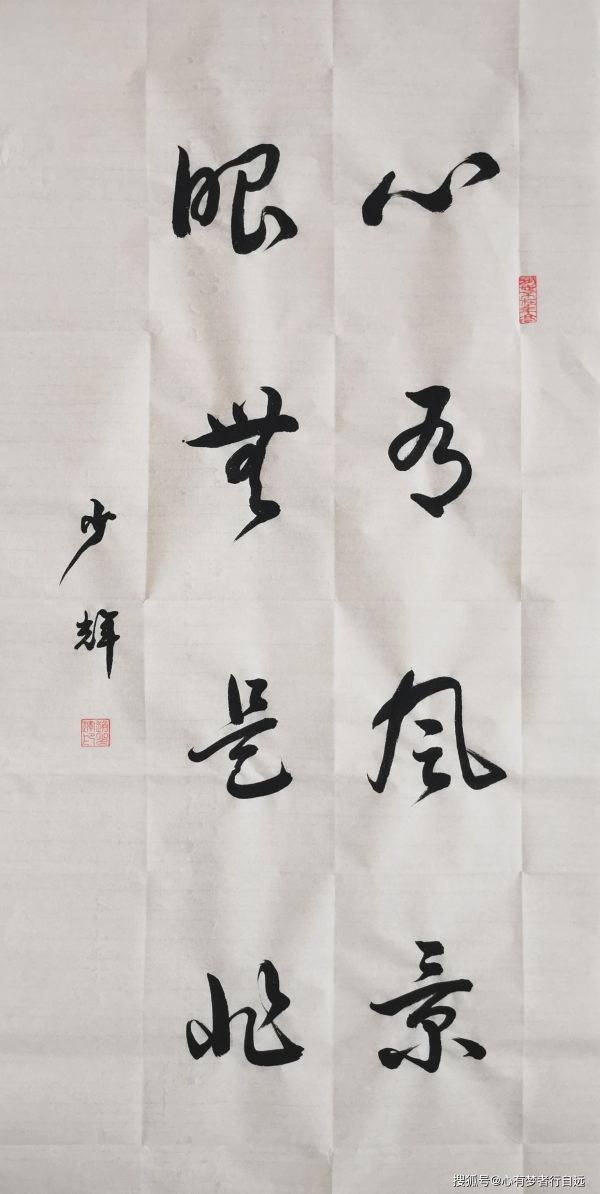 心有風景
眼無是非
少輝
搜狐号@心有梦者行自远